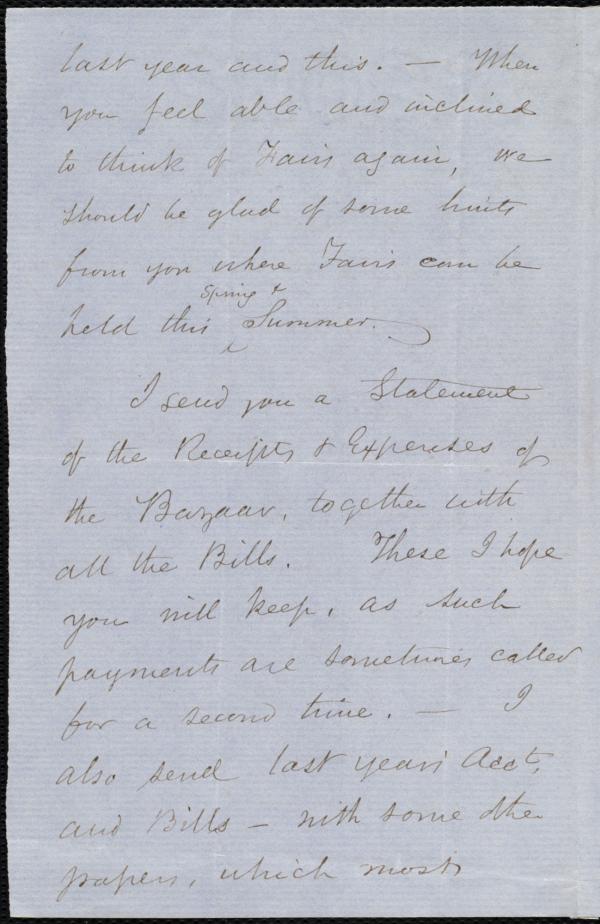 last year and this. — When
you feel able and inclined
to think of Fairs again, we
should be glad of some hints
from you where Fairs can be
held this Spring & Summer.
I send you a Statement
of the Receipts & Expenses of
the Bazaar, together with
all the Bills. These I hope
you will keep, as such
payments are sometimes called
for a second time. — I
also send last year's Acct,
and Bills — with some other
papers, which most